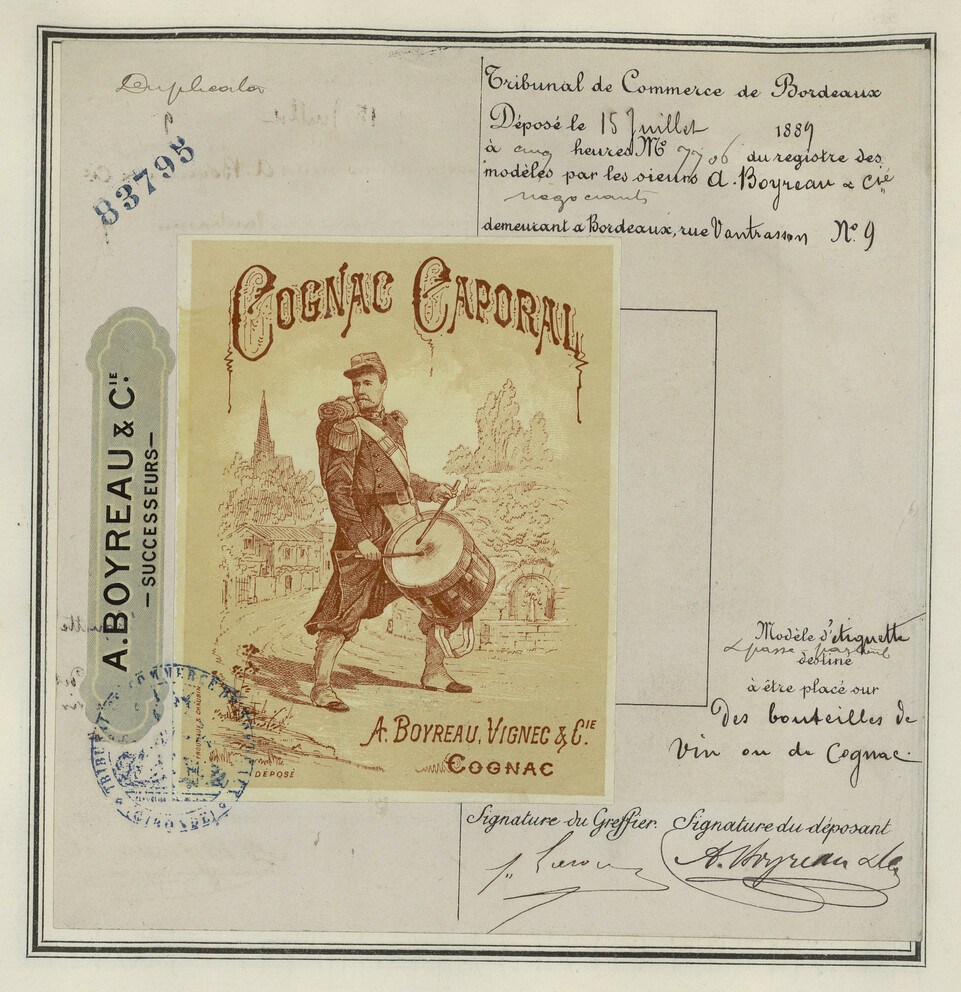 Duplicata
9
83795
Tribunal de Commerce de Bordeaux
Déposé le 15 Juillet 1889
à cinq heures M Nº 7706 du registre des
modèles par les sieurs A. Boyreau & Cie
négociants
demeurant a Bordeaux, rue Vantrasson Nº 9
COGNAC CAPORAL
A. BOYREAU & CIE.
— SUCCESSEURS —
A. BOYREAU, VIGNEC & CIE.
COGNAC
DEPOSÉ
TRIBUNAL DE COMMERCE
(GIRONDE)
Modèle d'étiquette
& passe partout
destiné
à être placé sur
des bouteilles de
vin ou de Cognac.
Signature du Greffier. Signature du déposant
A. Boyreau & Cie